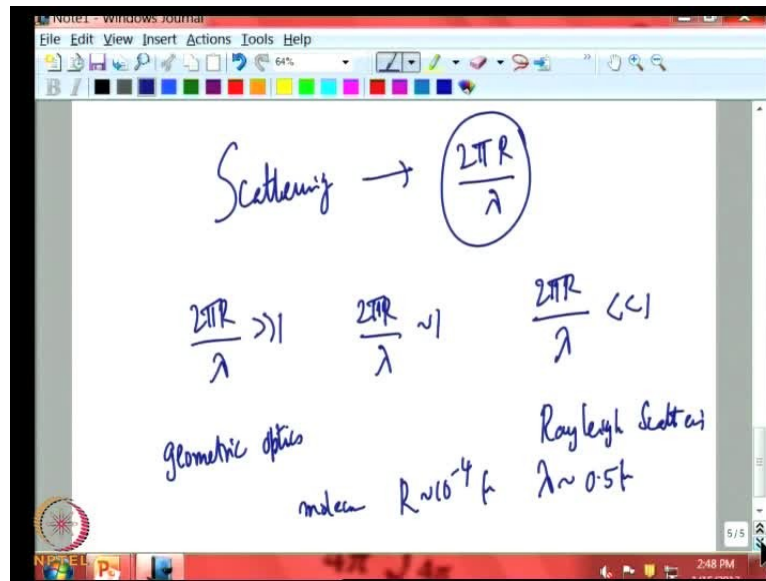 Note1 - Windows Journal
File Edit View Insert Actions Tools Help
64%
B I
Scattering → 2πR/λ
2πR/λ >>1 2πR/λ ~1 2πR/λ <<1
geometric optics Rayleigh Scatteri
molecu R~10⁻⁴ μ λ~ 0.5μ
5/5
NPTEL
2:48 PM